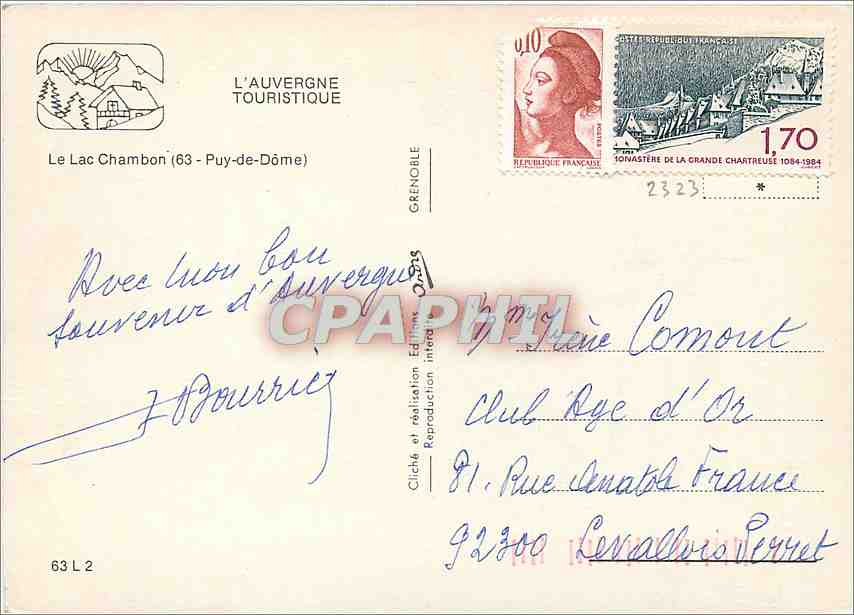 L'AUVERGNE
TOURISTIQUE
Le Lac Chambon (63 - Puy-de-Dôme)
Avec mon bon
souvenir d'Auvergne
63 L 2
GRENOBLE
Cliché et réalisation Editions André
Reproduction interdite
CPAPHIL
0,10
POSTES
RÉPUBLIQUE FRANÇAISE
POSTES RÉPUBLIQUE FRANÇAISE
1,70
MONASTÈRE DE LA GRANDE CHARTREUSE 1084-1984
2323
*
Mme Irène Comont
Club Age d'Or
81. Rue Anatole France
92300 Levallois Perret